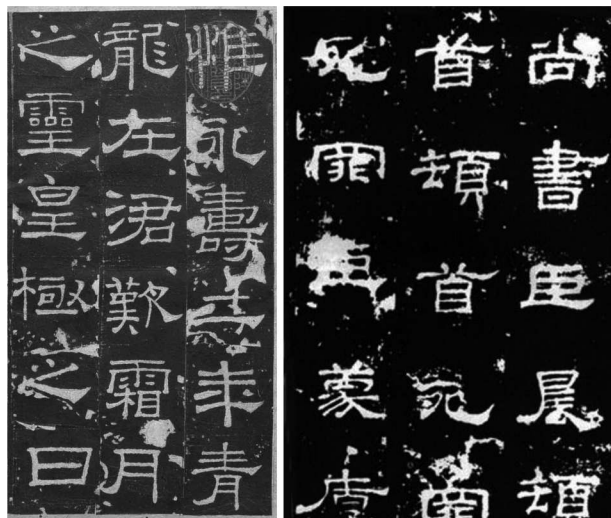 惟永壽二年青
龍在涒歎霜月
之靈皇極之日
尚書臣晨頓
首頓首死罪
死罪臣蒙厚